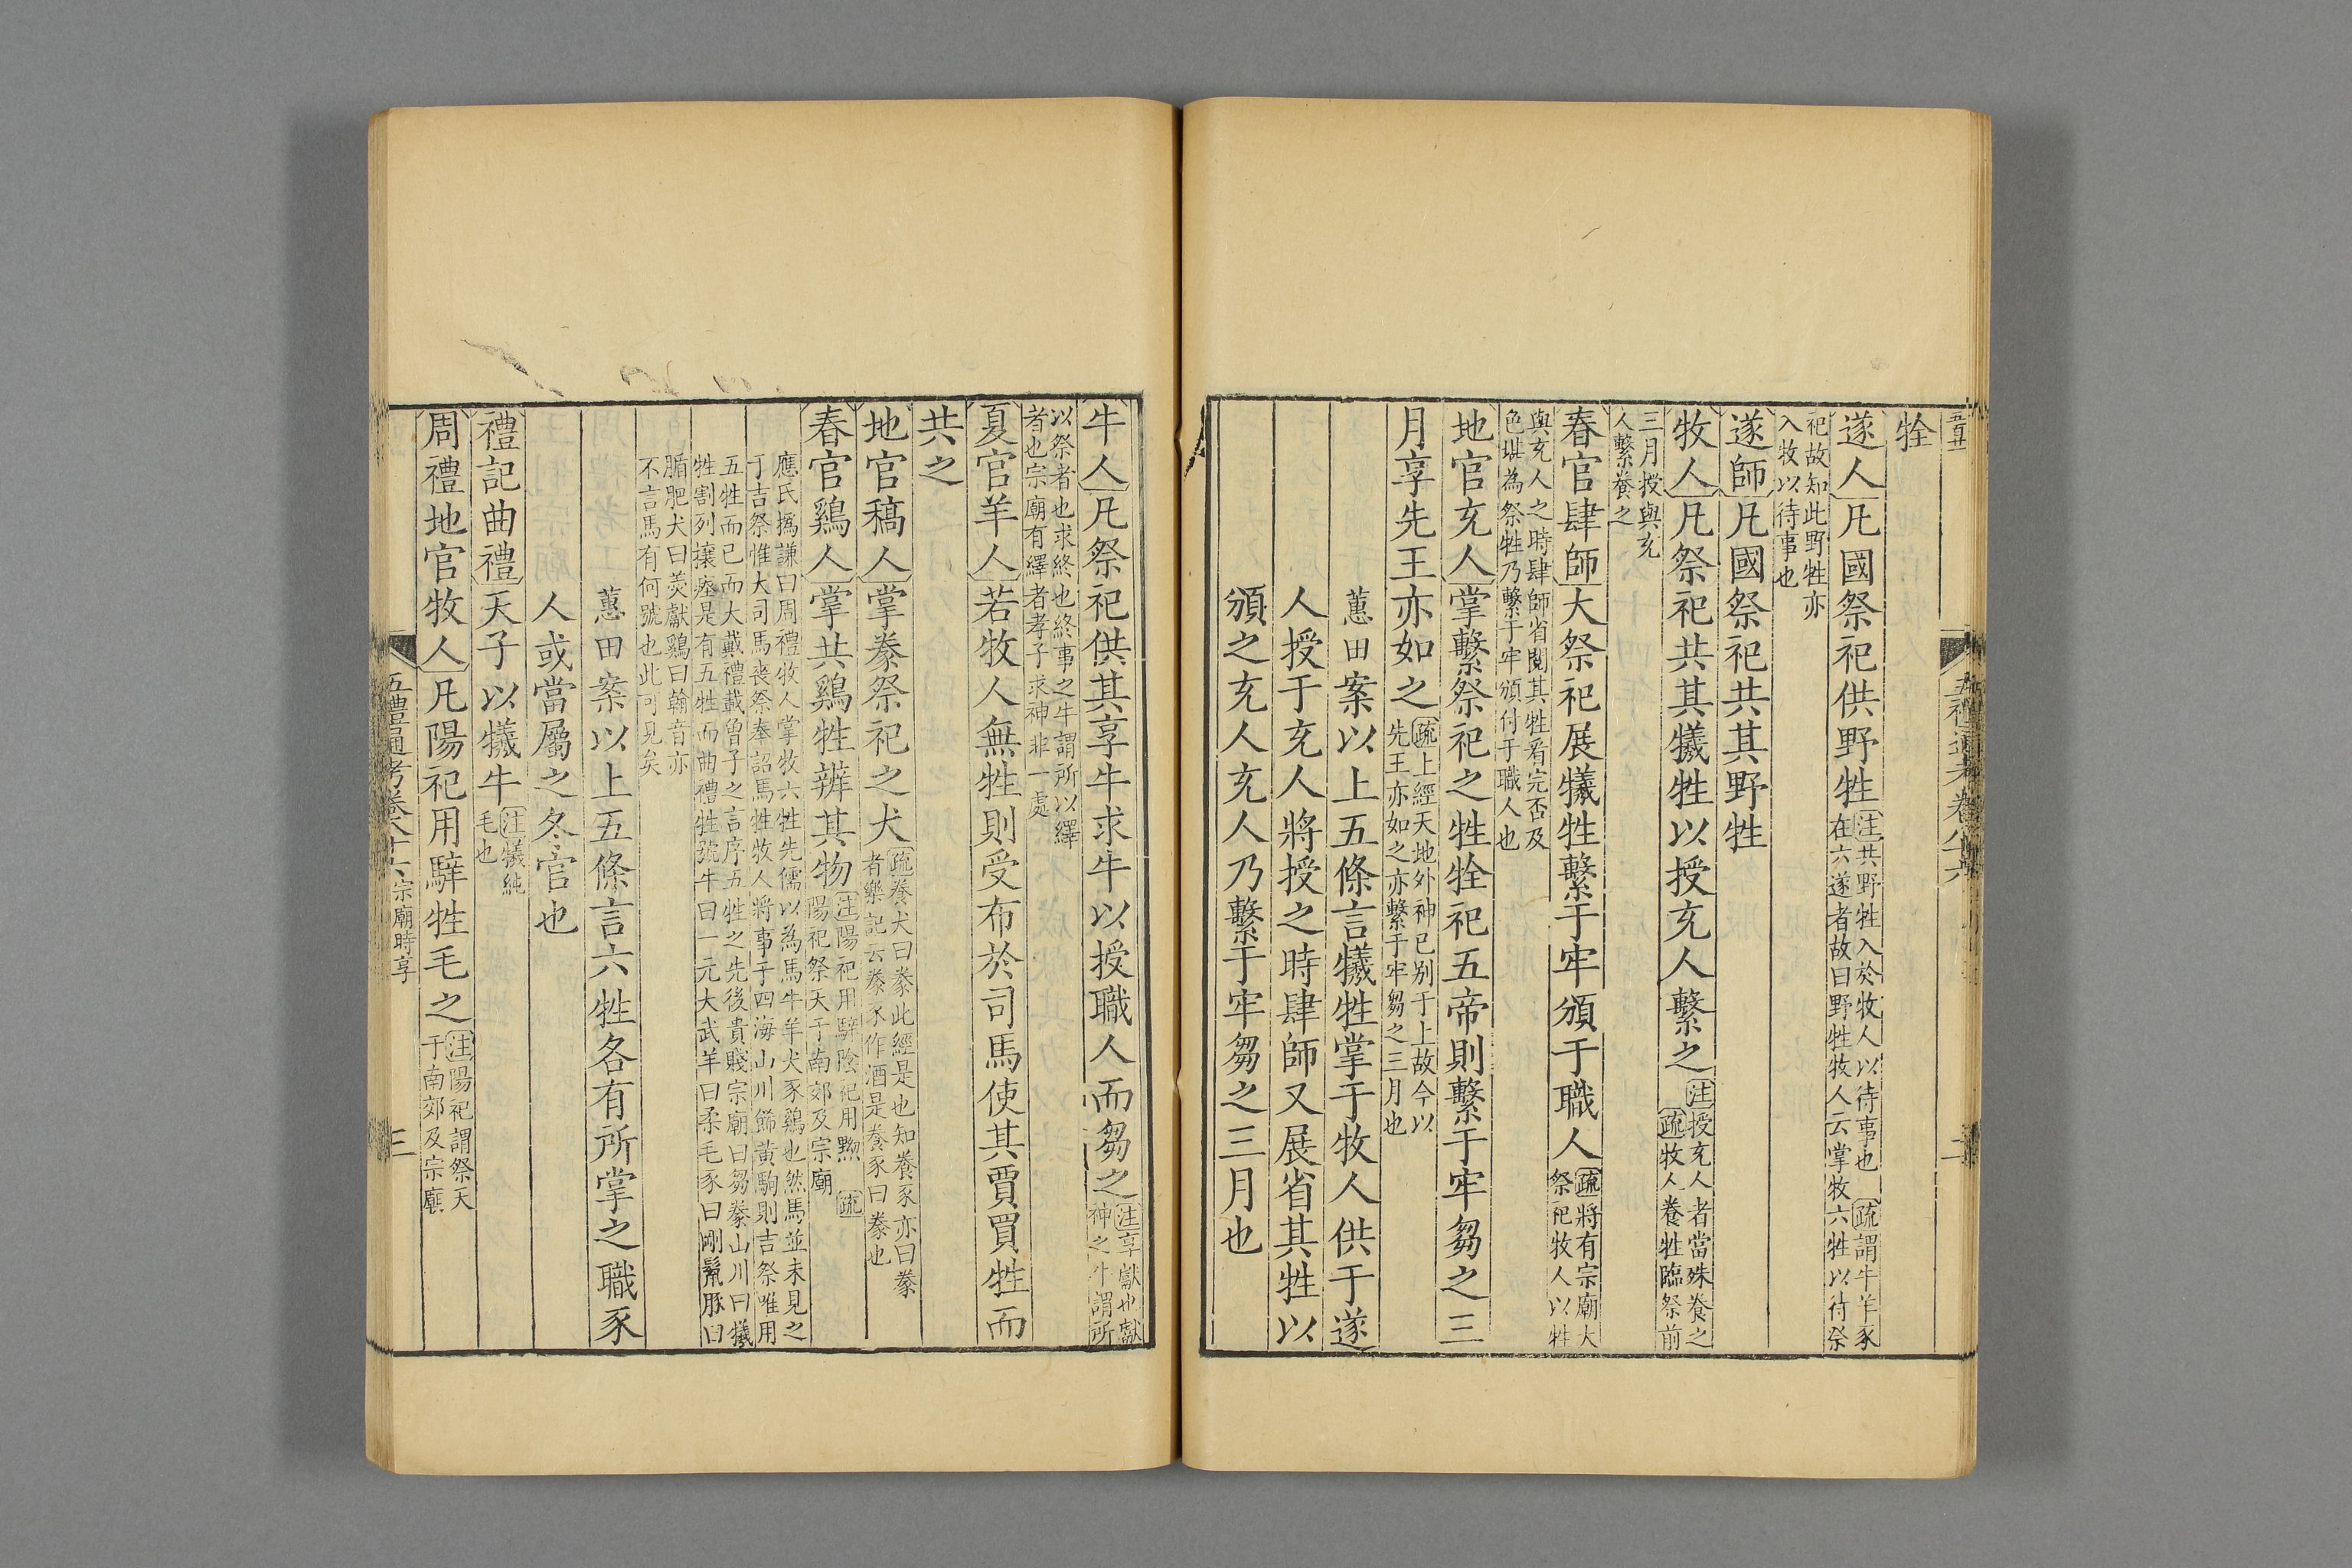 牷
遂人凡國祭祀供野牲注共野牲入於牧人以待事也疏謂牛羊豕
在六遂者故曰野牲牧人云掌牧六牲以待祭
祀故知此野牲亦
入牧以待事也
遂師凡國祭祀共其野牲
牧人凡祭祀共其犧牲以授充人繫之注授充人者當殊養之
疏牧人養牲臨祭前
三月授與充
人繫養之
春官肆師大祭祀展犧牲繫于牢頒于職人疏將有宗廟大
祭祀牧人以牲
與充人之時肆師省閱其牲看完否及
色堪為祭牲乃繫于牢頒付于職人也
地官充人掌繫祭祀之牲牷祀五帝則繫于牢芻之三
月享先王亦如之疏上經天地外神已别于上故今以
先王亦如之亦繫于牢芻之三月也
蕙田案以上五條言犧牲掌于牧人供于遂
人授于充人將授之時肆師又展省其牲以
頒之充人充人乃繫于牢芻之三月也
牛人凡祭祀供其享牛求牛以授職人而芻之注享獻也獻
神之牛謂所
以祭者也求終也終事之牛謂所以繹
者也宗廟有繹者孝子求神非一處
夏官羊人若牧人無牲則受布於司馬使其賈買牲而
共之
地官稿人掌豢祭祀之犬疏養犬曰豢此經是也知養豕亦曰豢
者樂記云豢豕作酒是養豕曰豢也
春官鷄人掌共鷄牲辨其物注陽祀用騂陰祀用黝疏
陽祀祭天于南郊及宗廟
應氏撝謙曰周禮牧人掌牧六牲先儒以為馬牛羊犬豕鷄也然馬並未見之
于吉祭惟大司馬喪祭奉詔馬牲牧人將事于四海山川飾黃駒則吉祭唯用
五牲而已而大戴禮載曾子之言序五牲之先後貴賤宗廟曰芻豢山川曰犧
牲割列攘瘞是有五牲而曲禮牲號牛曰一元大武羊曰柔毛豕曰剛鬛豚曰
腯肥犬曰羮獻鷄曰翰音亦
不言馬有何號也此可見矣
蕙田案以上五條言六牲各有所掌之職豕
人或當屬之冬官也
禮記曲禮天子以犧牛注犧純
毛也
周禮地官牧人凡陽祀用騂牲毛之注陽祀謂祭天
于南郊及宗廟
五禮通考卷八十六宗廟時享
三